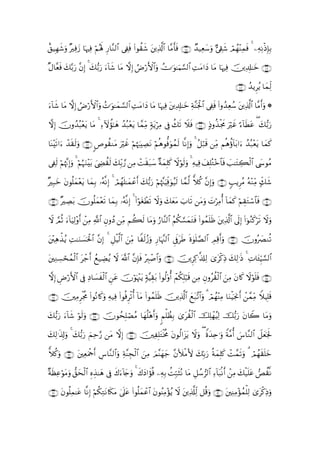 بِإِذۡنِهِۦۚ فَمِنۡهُمۡ شَقِيّٞ وَسَعِيدٞ ۝ فَأَمَّا ٱلَّذِينَ شَقُواْ فَفِي ٱلنَّارِ لَهُمۡ فِيهَا زَفِيرٞ وَشَهِيقٌ ۝
خَٰلِدِينَ فِيهَا مَا دَامَتِ ٱلسَّمَٰوَٰتُ وَٱلۡأَرۡضُ إِلَّا مَا شَآءَ رَبُّكَۚ إِنَّ رَبَّكَ فَعَّالٞ
لِّمَا يُرِيدُ ۝
۞ وَأَمَّا ٱلَّذِينَ سُعِدُواْ فَفِي ٱلۡجَنَّةِ خَٰلِدِينَ فِيهَا مَا دَامَتِ ٱلسَّمَٰوَٰتُ وَٱلۡأَرۡضُ إِلَّا مَا شَآءَ
رَبُّكَۖ عَطَآءً غَيۡرَ مَجۡذُوذٖ ۝ فَلَا تَكُ فِي مِرۡيَةٖ مِّمَّا يَعۡبُدُ هَٰٓؤُلَآءِۚ مَا يَعۡبُدُونَ إِلَّا
كَمَا يَعۡبُدُ ءَابَآؤُهُم مِّن قَبۡلُۚ وَإِنَّا لَمُوَفُّوهُمۡ نَصِيبَهُمۡ غَيۡرَ مَنقُوصٖ ۝ وَلَقَدۡ ءَاتَيۡنَا
مُوسَى ٱلۡكِتَٰبَ فَٱخۡتُلِفَ فِيهِۚ وَلَوۡلَا كَلِمَةٞ سَبَقَتۡ مِن رَّبِّكَ لَقُضِيَ بَيۡنَهُمۡۚ وَإِنَّهُمۡ لَفِي
شَكّٖ مِّنۡهُ مُرِيبٖ ۝ وَإِنَّ كُلّٗا لَّمَّا لَيُوَفِّيَنَّهُمۡ رَبُّكَ أَعۡمَٰلَهُمۡۚ إِنَّهُۥ بِمَا يَعۡمَلُونَ خَبِيرٞ
۝ فَٱسۡتَقِمۡ كَمَآ أُمِرۡتَ وَمَن تَابَ مَعَكَ وَلَا تَطۡغَوۡاْۚ إِنَّهُۥ بِمَا تَعۡمَلُونَ بَصِيرٞ ۝
وَلَا تَرۡكَنُوٓاْ إِلَى ٱلَّذِينَ ظَلَمُواْ فَتَمَسَّكُمُ ٱلنَّارُ وَمَا لَكُم مِّن دُونِ ٱللَّهِ مِنۡ أَوۡلِيَآءَ ثُمَّ لَا
تُنصَرُونَ ۝ وَأَقِمِ ٱلصَّلَوٰةَ طَرَفَيِ ٱلنَّهَارِ وَزُلَفٗا مِّنَ ٱلَّيۡلِۚ إِنَّ ٱلۡحَسَنَٰتِ يُذۡهِبۡنَ
ٱلسَّيِّـَٔاتِۚ ذَٰلِكَ ذِكۡرَىٰ لِلذَّٰكِرِينَ ۝ وَٱصۡبِرۡ فَإِنَّ ٱللَّهَ لَا يُضِيعُ أَجۡرَ ٱلۡمُحۡسِنِينَ
۝ فَلَوۡلَا كَانَ مِنَ ٱلۡقُرُونِ مِن قَبۡلِكُمۡ أُوْلُواْ بَقِيَّةٖ يَنۡهَوۡنَ عَنِ ٱلۡفَسَادِ فِي ٱلۡأَرۡضِ إِلَّا
قَلِيلٗا مِّمَّنۡ أَنجَيۡنَا مِنۡهُمۡۗ وَٱتَّبَعَ ٱلَّذِينَ ظَلَمُواْ مَآ أُتۡرِفُواْ فِيهِ وَكَانُواْ مُجۡرِمِينَ ۝
وَمَا كَانَ رَبُّكَ لِيُهۡلِكَ ٱلۡقُرَىٰ بِظُلۡمٖ وَأَهۡلُهَا مُصۡلِحُونَ ۝ وَلَوۡ شَآءَ رَبُّكَ
لَجَعَلَ ٱلنَّاسَ أُمَّةٗ وَٰحِدَةٗۖ وَلَا يَزَالُونَ مُخۡتَلِفِينَ ۝ إِلَّا مَن رَّحِمَ رَبُّكَۚ وَلِذَٰلِكَ
خَلَقَهُمۡۗ وَتَمَّتۡ كَلِمَةُ رَبِّكَ لَأَمۡلَأَنَّ جَهَنَّمَ مِنَ ٱلۡجِنَّةِ وَٱلنَّاسِ أَجۡمَعِينَ ۝ وَكُلّٗا
نَّقُصُّ عَلَيۡكَ مِنۡ أَنۢبَآءِ ٱلرُّسُلِ مَا نُثَبِّتُ بِهِۦ فُؤَادَكَۚ وَجَآءَكَ فِي هَٰذِهِ ٱلۡحَقُّ وَمَوۡعِظَةٞ
وَذِكۡرَىٰ لِلۡمُؤۡمِنِينَ ۝ وَقُل لِّلَّذِينَ لَا يُؤۡمِنُونَ ٱعۡمَلُواْ عَلَىٰ مَكَانَتِكُمۡ إِنَّا عَٰمِلُونَ ۝